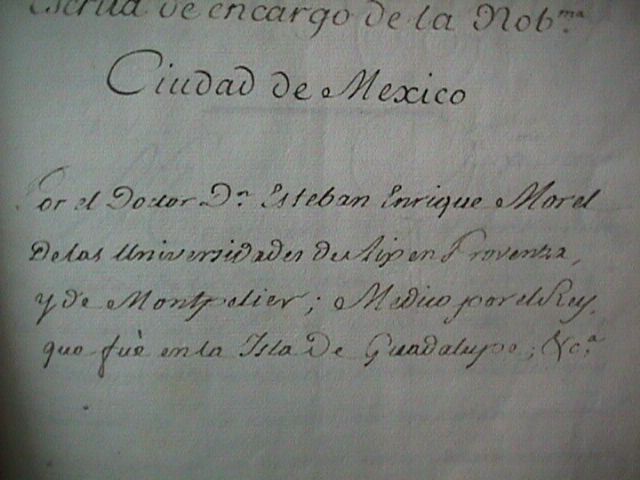 Escrita de encargo de la Nob.ma
Ciudad de Mexico
Por el Doctor D.n Esteban Enrique Morel
de las Universidades de Aix en Provenza,
y de Montpelier; Medico por el Rey,
que fuè en la Isla de Guadalupe; &c.a